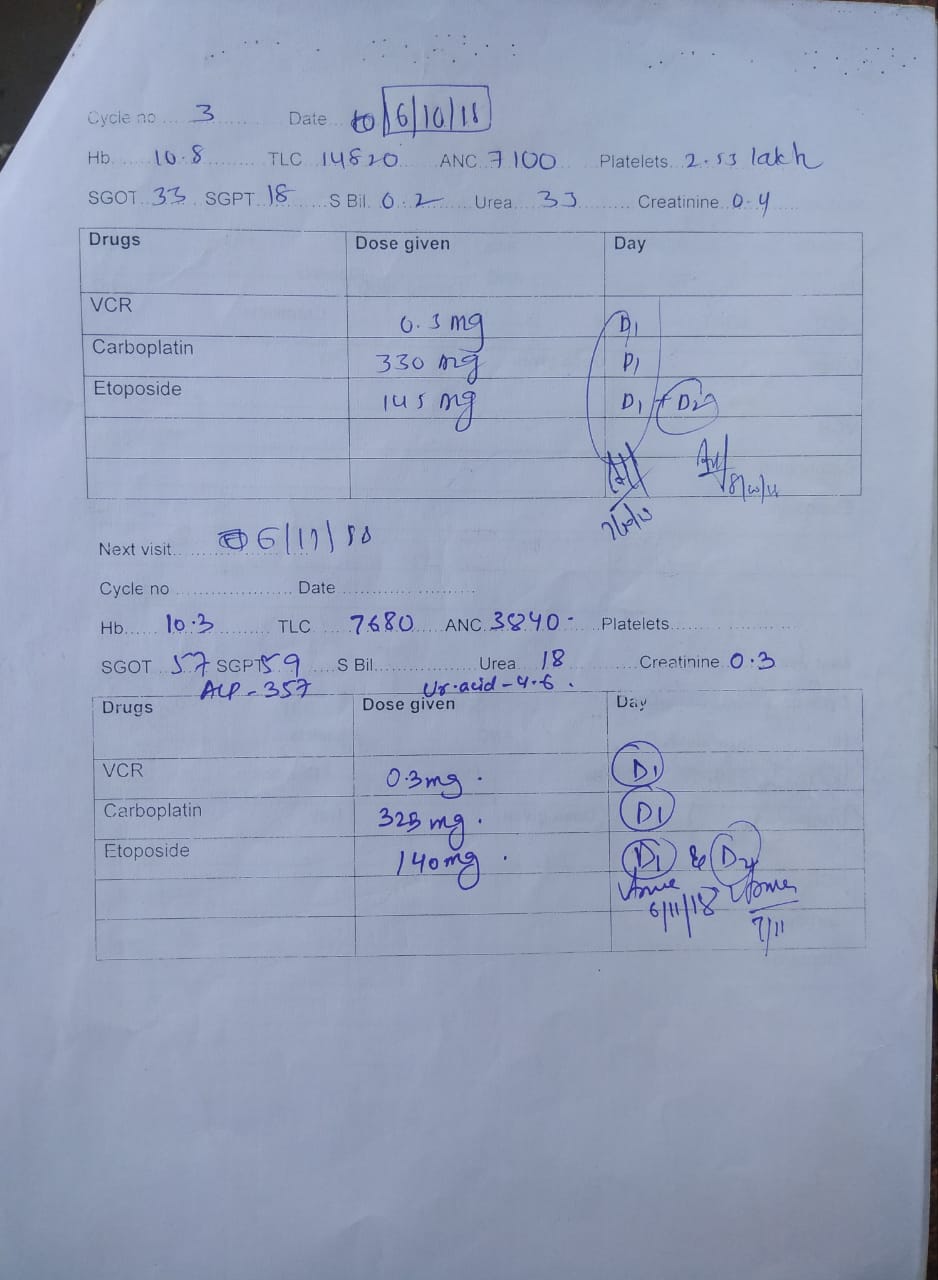 Cycle no .... 3 ....... Date.. to 6/10/18
Hb....... 10.8 ......... TLC 14820 ANC 7100 Platelets.. 2.53 lakh
SGOT.. 33 .. SGPT. 18 ......S Bil. 0.2 ..... Urea... 33 ......... Creatinine.. 0.4
Drugs Dose given Day
VCR 0.3 mg D1
Carboplatin 330 mg D1
Etoposide 145 mg D1 + D2
8/10/18
7/10/18
Next visit.. 6/11/18
Cycle no ..................... Date ........................
Hb...... 10.3 ........... TLC 7680 ..... ANC. 3840 - ..Platelets..................
SGOT ... 57 SGPT 59 .....S Bil................... Urea.. 18 ............Creatinine. 0.3
ALP - 357 Ur. acid - 4.6 .
Drugs Dose given Day
VCR 0.3mg . D1
Carboplatin 325 mg . D1
Etoposide 140mg . D1 & D2
6/11/18
7/11